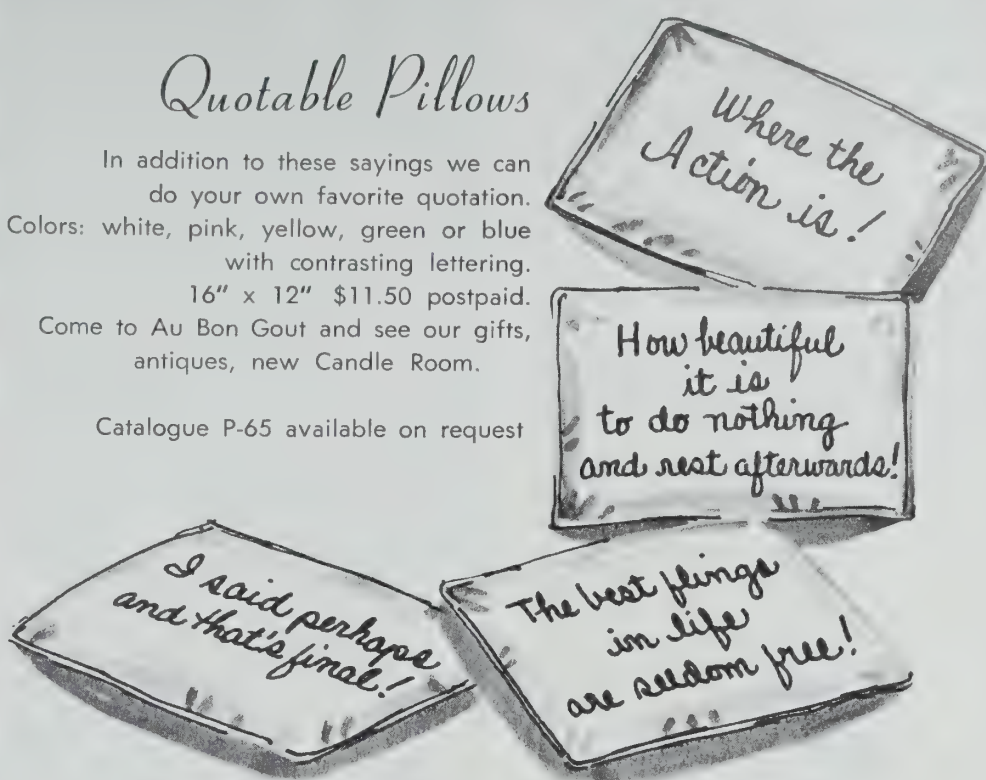 Quotable Pillows
In addition to these sayings we can
do your own favorite quotation.
Colors: white, pink, yellow, green or blue
with contrasting lettering.
16" x 12" $11.50 postpaid.
Come to Au Bon Gout and see our gifts,
antiques, new Candle Room.
Catalogue P-65 available on request
Where the
Action is!
How beautiful
it is
to do nothing
and rest afterwards!
I said perhaps
and that's final!
The best flings
in life
are seldom free!